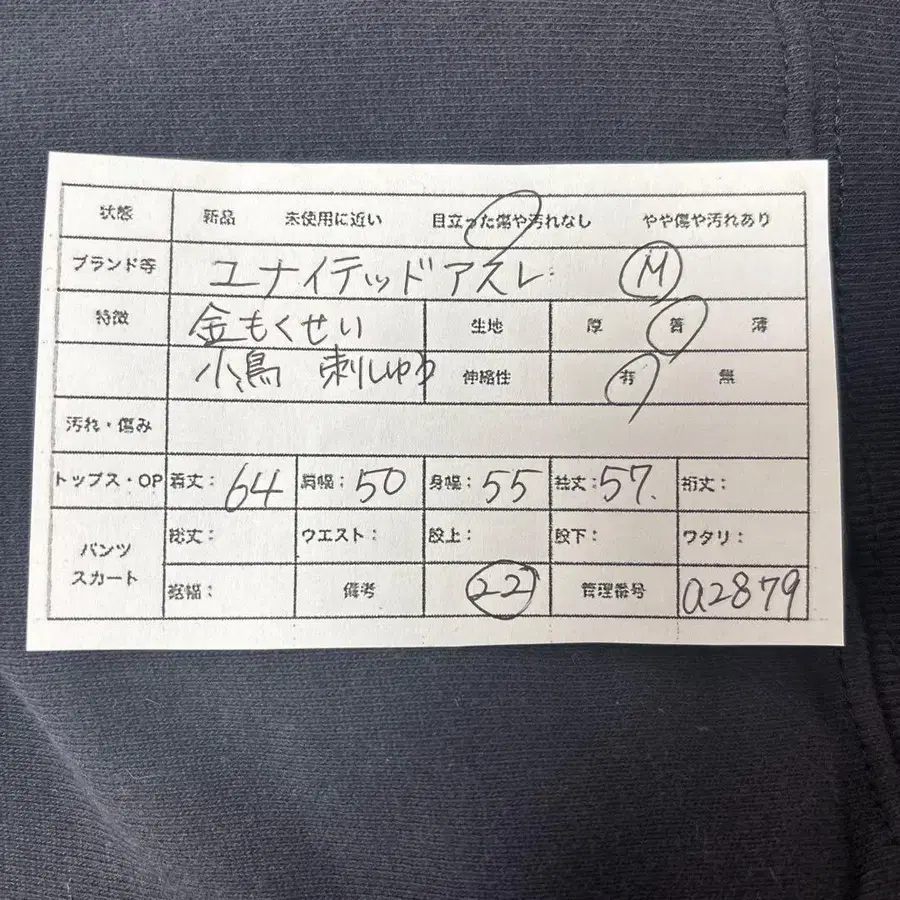 状態 新品 未使用に近い 目立った傷や汚れなし やや傷や汚れあり
ブランド等 ユナイテッドアスレ M
特徴 金もくせい 生地 厚 普 薄
小鳥 刺しゅう 伸縮性 有 無
汚れ・傷み
トップス・OP 着丈: 64 肩幅: 50 身幅: 55 袖丈: 57. 裄丈:
パンツ スカート 総丈: ウエスト: 股上: 股下: ワタリ:
裾幅: 備考 22 管理番号 a2879